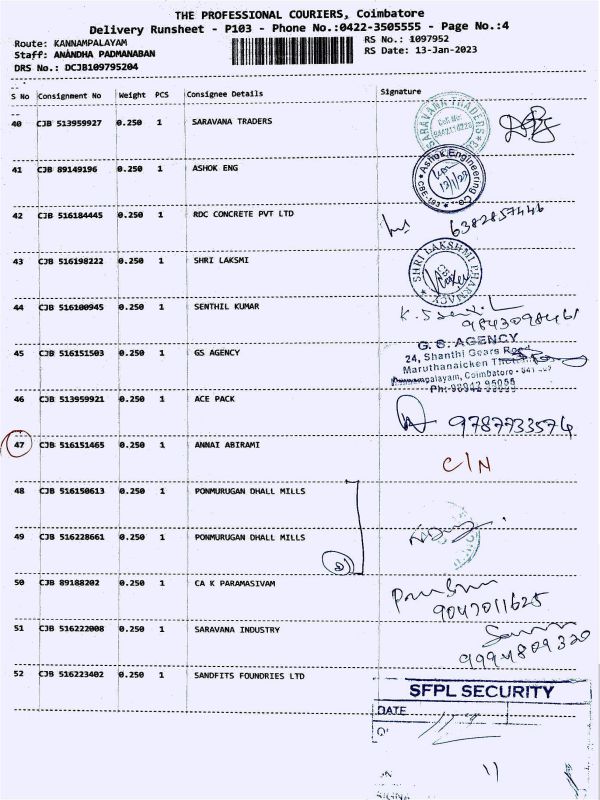 THE PROFESSIONAL COURIERS, Coimbatore
Delivery Runsheet - P103 - Phone No.:0422-3505555 - Page No.:4
Route: KANNAMPALAYAM
RS No.: 1097952
Staff: ANANDHA PADMANABAN
RS Date: 13-Jan-2023
DRS No.: DCJB109795204
S No Consignment No Weight PCS Consignee Details Signature
40 CJB 513959927 0.250 1 SARAVANA TRADERS
SARAVANA TRADERS
41 CJB 89149196 0.250 1 ASHOK ENG
Ashok Engineering
CBE-103
42 CJB 516184445 0.250 1 RDC CONCRETE PVT LTD
6382857446
43 CJB 516198222 0.250 1 SHRI LAKSMI
SHRI LAKSHMI PHARMACY
44 CJB 516100945 0.250 1 SENTHIL KUMAR
9843098461
45 CJB 516151503 0.250 1 GS AGENCY
G. S. AGENCY
24, Shanthi Gears Road
Maruthanaicken
Coimbatore
46 CJB 513959921 0.250 1 ACE PACK
9787733574
47 CJB 516151465 0.250 1 ANNAI ABIRAMI
C/N
48 CJB 516150613 0.250 1 PONMURUGAN DHALL MILLS
49 CJB 516228661 0.250 1 PONMURUGAN DHALL MILLS
50 CJB 89188202 0.250 1 CA K PARAMASIVAM
9047011625
51 CJB 516222008 0.250 1 SARAVANA INDUSTRY
9994809320
52 CJB 516223402 0.250 1 SANDFITS FOUNDRIES LTD
SFPL SECURITY
DATE